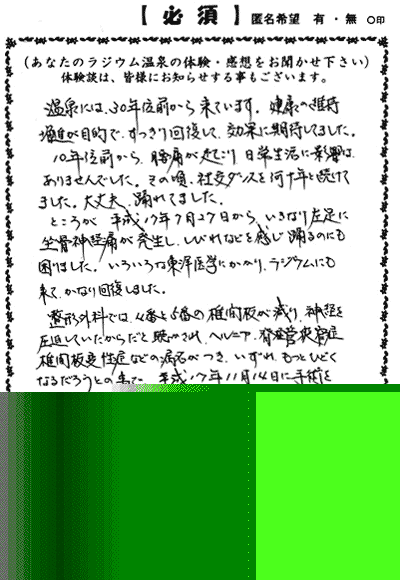 【必須】 匿名希望 有・無 ○印
(あなたのラジウム温泉の体験・感想をお聞かせ下さい)
体験談は、皆様にお知らせする事もございます。
温泉には、30年位前から来ています。健康の維持
増進が目的で、すっきり回復して、効果に期待してました。
10年位前から、腰痛が起こり日常生活に影響は
ありませんでした。その頃、社交ダンスを何十年と続けて
ました。大丈夫、踊れてました。
ところが 平成17年7月27日から、いきなり左足に
坐骨神経痛が発生し、しびれなどを感じ踊るのにも
困りました。いろいろな東洋医学にかかり、ラジウムにも
来て、かなり回復しました。
整形外科では、4番と5番の椎間板が減り、神経を
圧迫していたからだと聴かされ、ヘルニア、脊柱管狭窄症
椎間板変性症などの病名がつき、いずれ、もっとひどく
なるだろうとの 平成17年11月14日に手術を